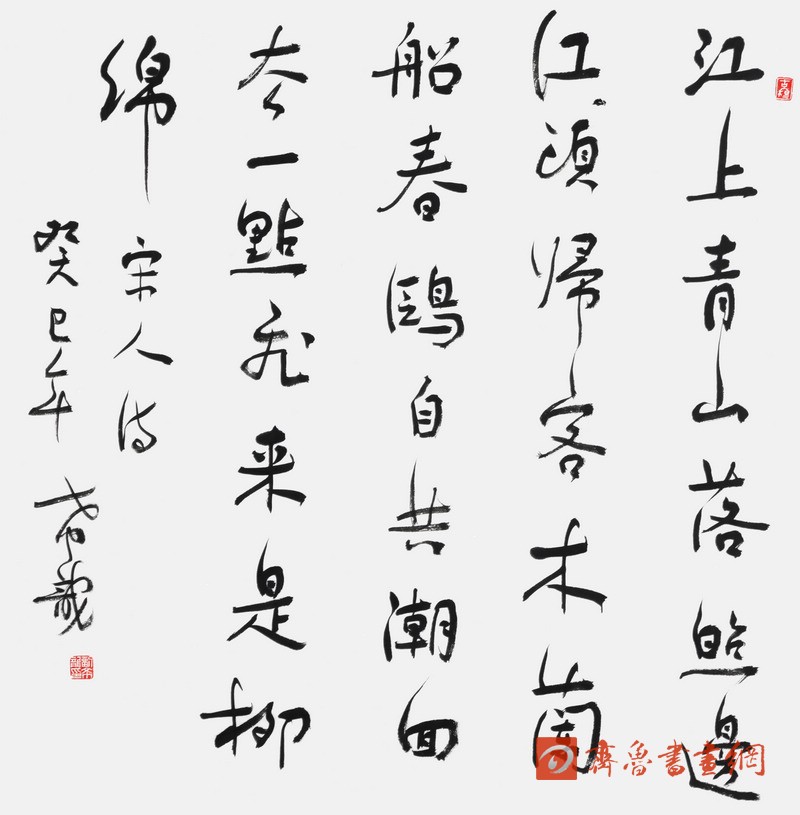 江上青山落照邊
江頭帰客木蘭
船春鷗自共潮囬
去一點飛来是柳
綿
宋人诗
癸巳年
齊魯書畫網